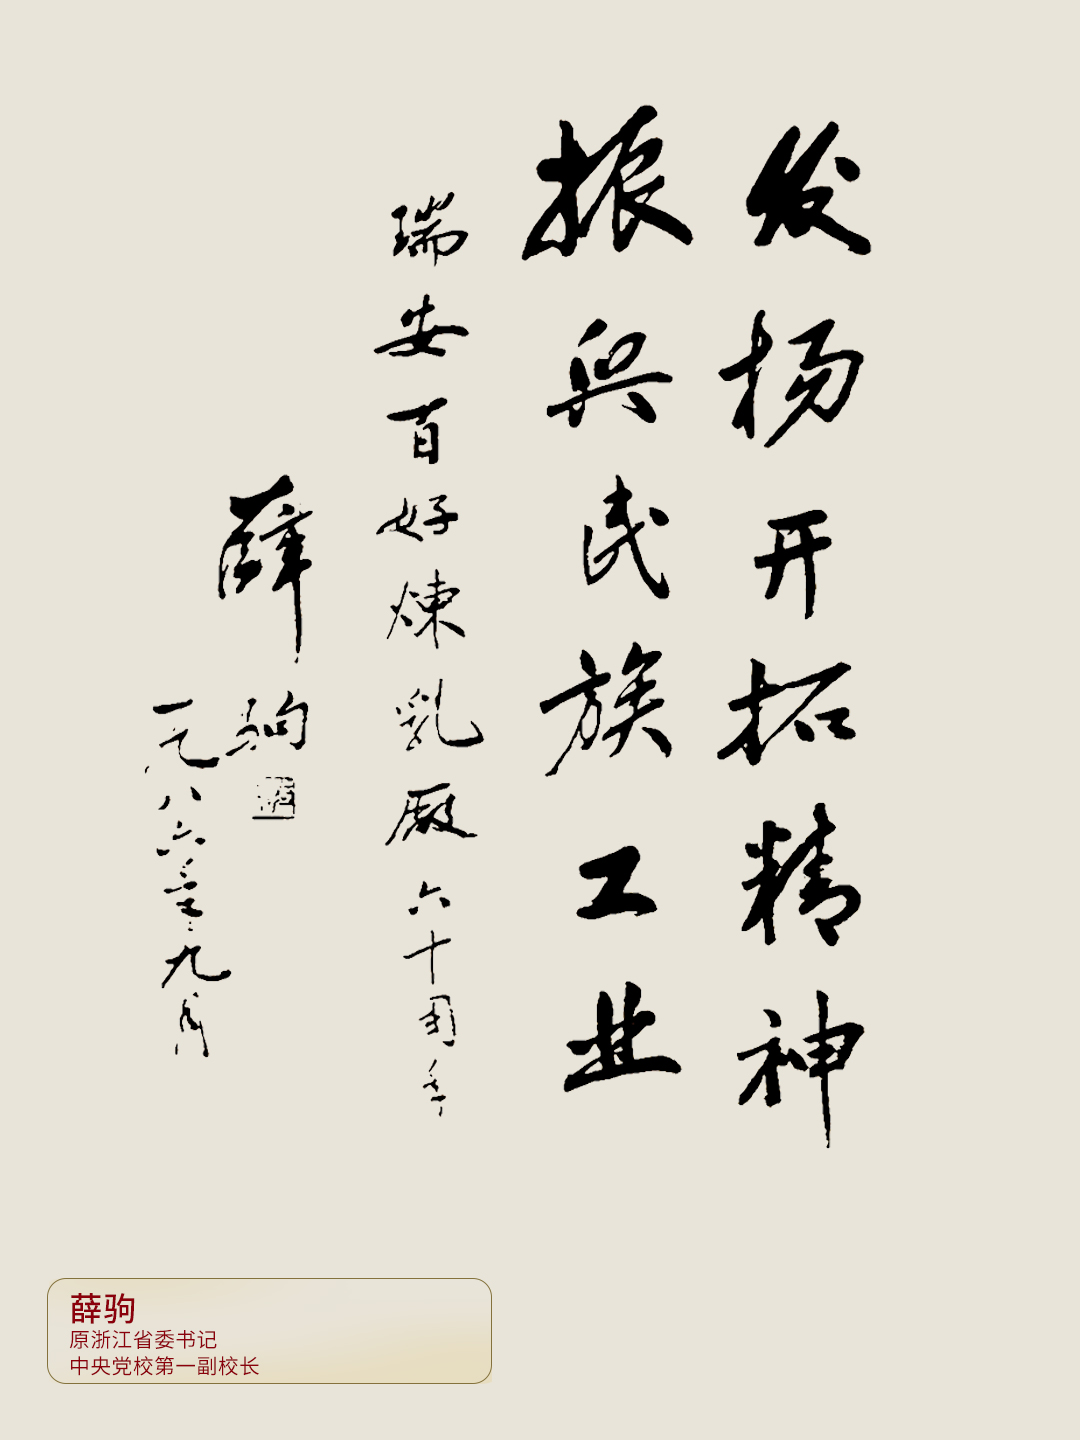 发扬开拓精神
振兴民族工业
瑞安百好炼乳厰六十周年
薛驹
一九八六年九月
薛驹
原浙江省委书记
中央党校第一副校长